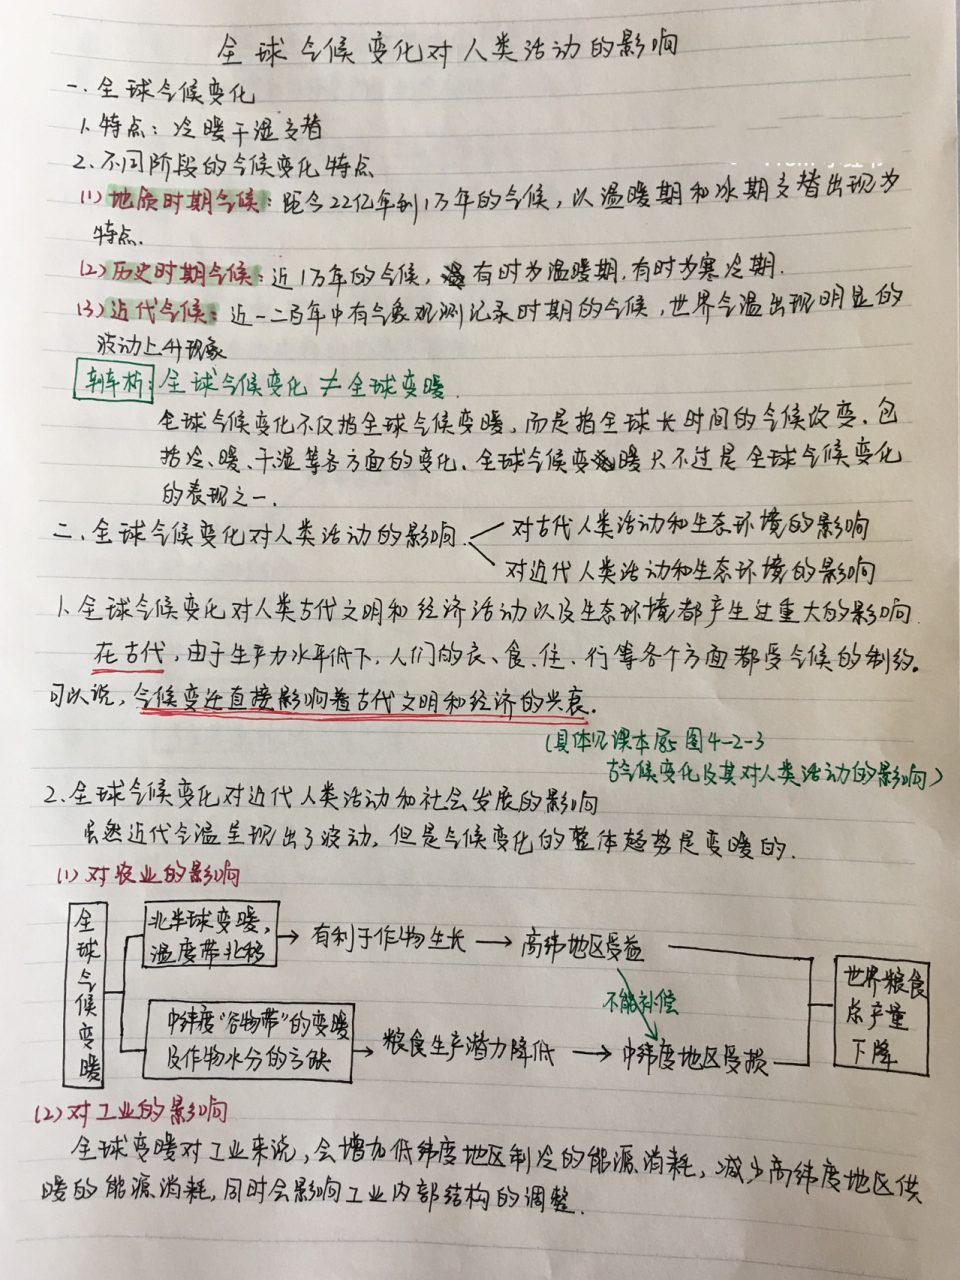 全球气候变化对人类活动的影响
一.全球气候变化
1.特点：冷暖干湿交替
2.不同阶段的气候变化特点
(1)地质时期气候：距今22亿年到1万年的气候，以温暖期和冰期交替出现为
特点.
(2)历史时期气候：近1万年的气候，有时为温暖期，有时为寒冷期.
(3)近代气候：近一二百年中有气象观测记录时期的气候，世界气温出现明显的
波动上升现象
辨析：全球气候变化≠全球变暖.
全球气候变化不仅指全球气候变暖，而是指全球长时间的气候改变.包
括冷、暖、干湿等各方面的变化.全球气候变暖只不过是全球气候变化
的表现之一.
二.全球气候变化对人类活动的影响.
对古代人类活动和生态环境的影响
对近代人类活动和生态环境的影响
1.全球气候变化对人类古代文明和经济活动以及生态环境都产生过重大的影响.
在古代，由于生产力水平低下，人们的衣、食、住、行等各个方面都受气候的制约。
可以说，气候变迁直接影响着古代文明和经济的兴衰.
(具体见课本 图4-2-3
古气候变化及其对人类活动的影响)
2.全球气候变化对近代人类活动和社会发展的影响
虽然近代气温呈现出了波动，但是气候变化的整体趋势是变暖的.
(1)对农业的影响
全球气候变暖
北半球变暖，
温度带北移
有利于作物生长
高纬地区受益
不能补偿
世界粮食
总产量
下降
中纬度“谷物带”的变暖
及作物水分的亏缺
粮食生产潜力降低
中纬度地区受损
(2)对工业的影响
全球变暖对工业来说，会增加低纬度地区制冷的能源消耗，减少高纬度地区供
暖的能源消耗，同时会影响工业内部结构的调整.